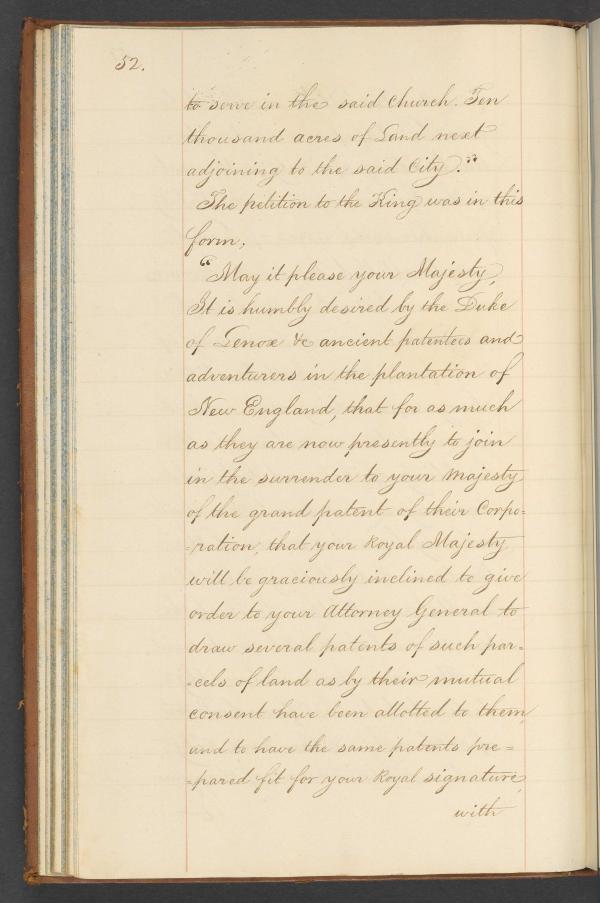 52.
to serve in the said Church. Ten
thousand acres of Land next
adjoining to the said City."
The petition to the King was in this
form;
"May it please your Majesty,
It is humbly desired by the Duke
of Lenox &c ancient patentees and
adventurers in the plantation of
New England, that for as much
as they are now presently to join
in the surrender to your Majesty
of the grand patent of their Corpo=
=ration, that your Royal Majesty
will be graciously inclined to give
order to your Attorney General to
draw several patents of such par=
=cels of land as by their mutual
consent have been allotted to them,
and to have the same patents pre=
=pared fit for your Royal signature,
with